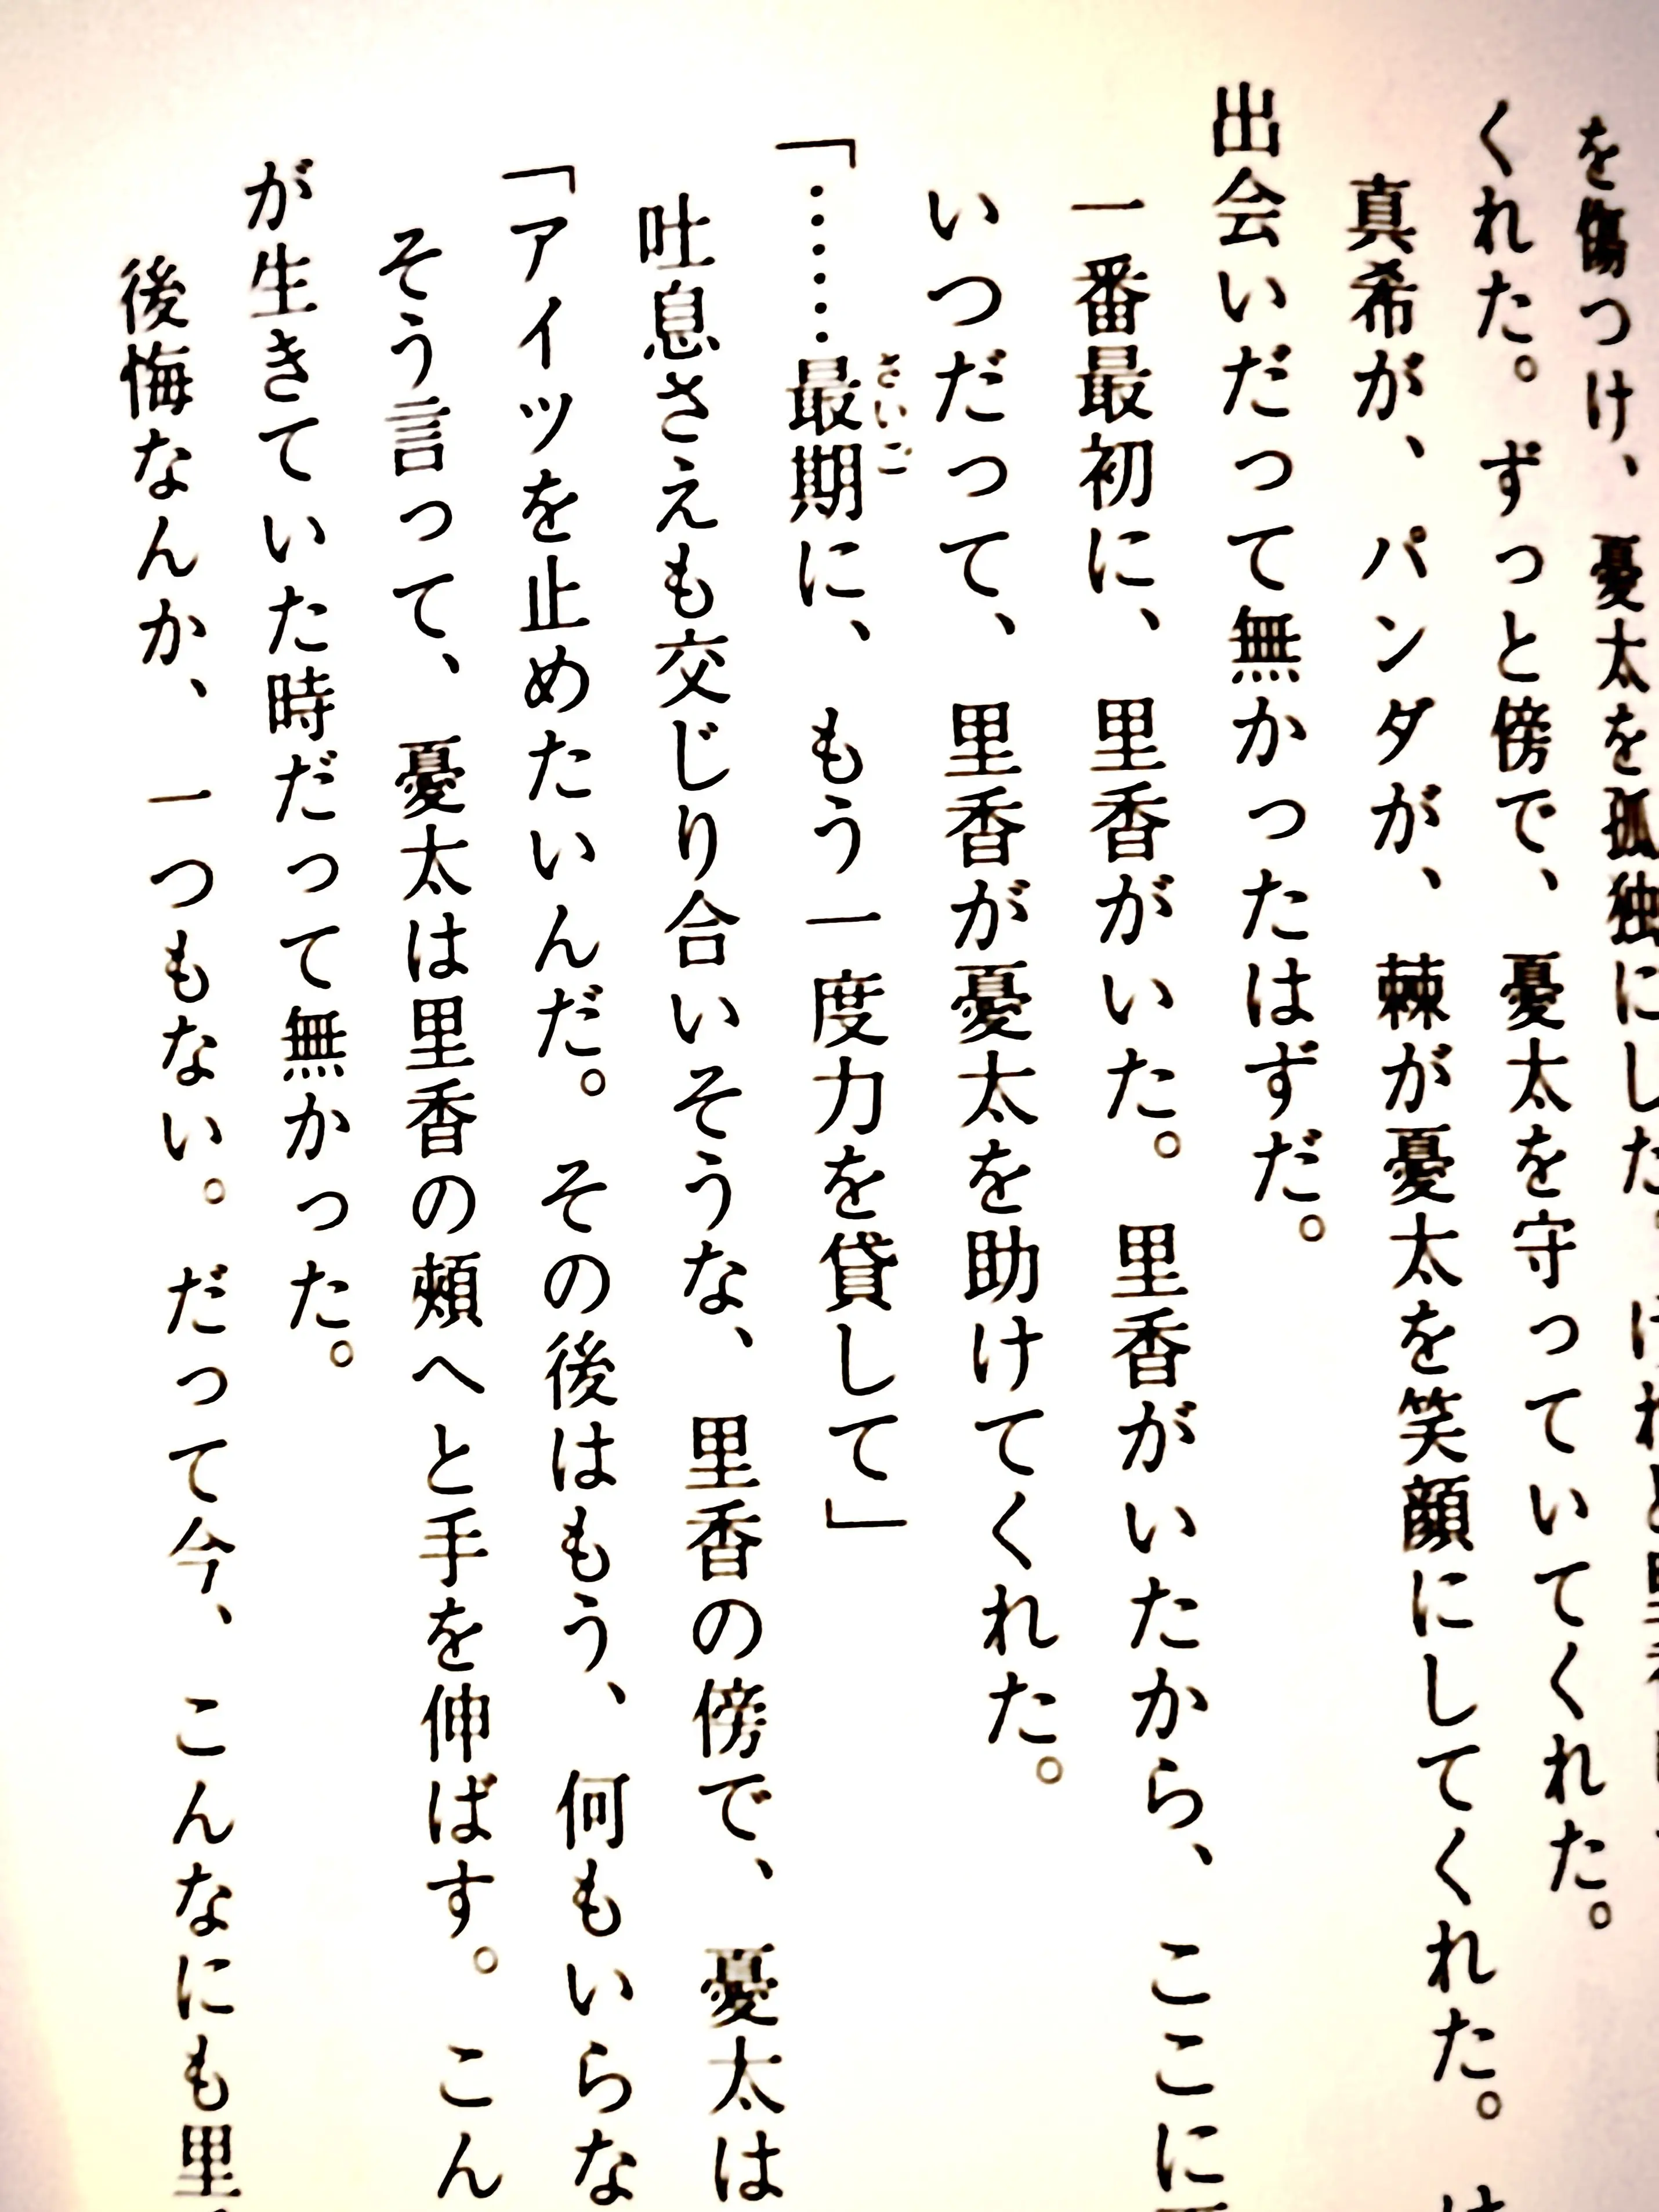 を傷つけ、憂太を孤独にした。けれど里
くれた。ずっと傍で、憂太を守っていてくれた。
真希が、パンダが、棘が憂太を笑顔にしてくれた。
出会いだって無かったはずだ。
一番最初に、里香がいた。里香がいたから、ここに
いつだって、里香が憂太を助けてくれた。
「……最期に、もう一度力を貸して」
吐息さえも交じり合いそうな、里香の傍で、憂太は
「アイツを止めたいんだ。その後はもう、何もいらな
そう言って、憂太は里香の頬へと手を伸ばす。こん
が生きていた時だって無かった。
後悔なんか、一つもない。だって今、こんなにも里